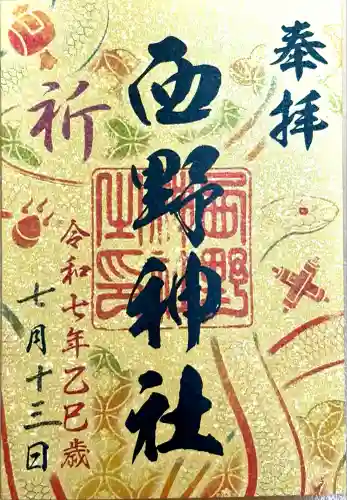 奉拝
西野神社
祈
令和七年乙巳歳
七月十三日
西野神社之印